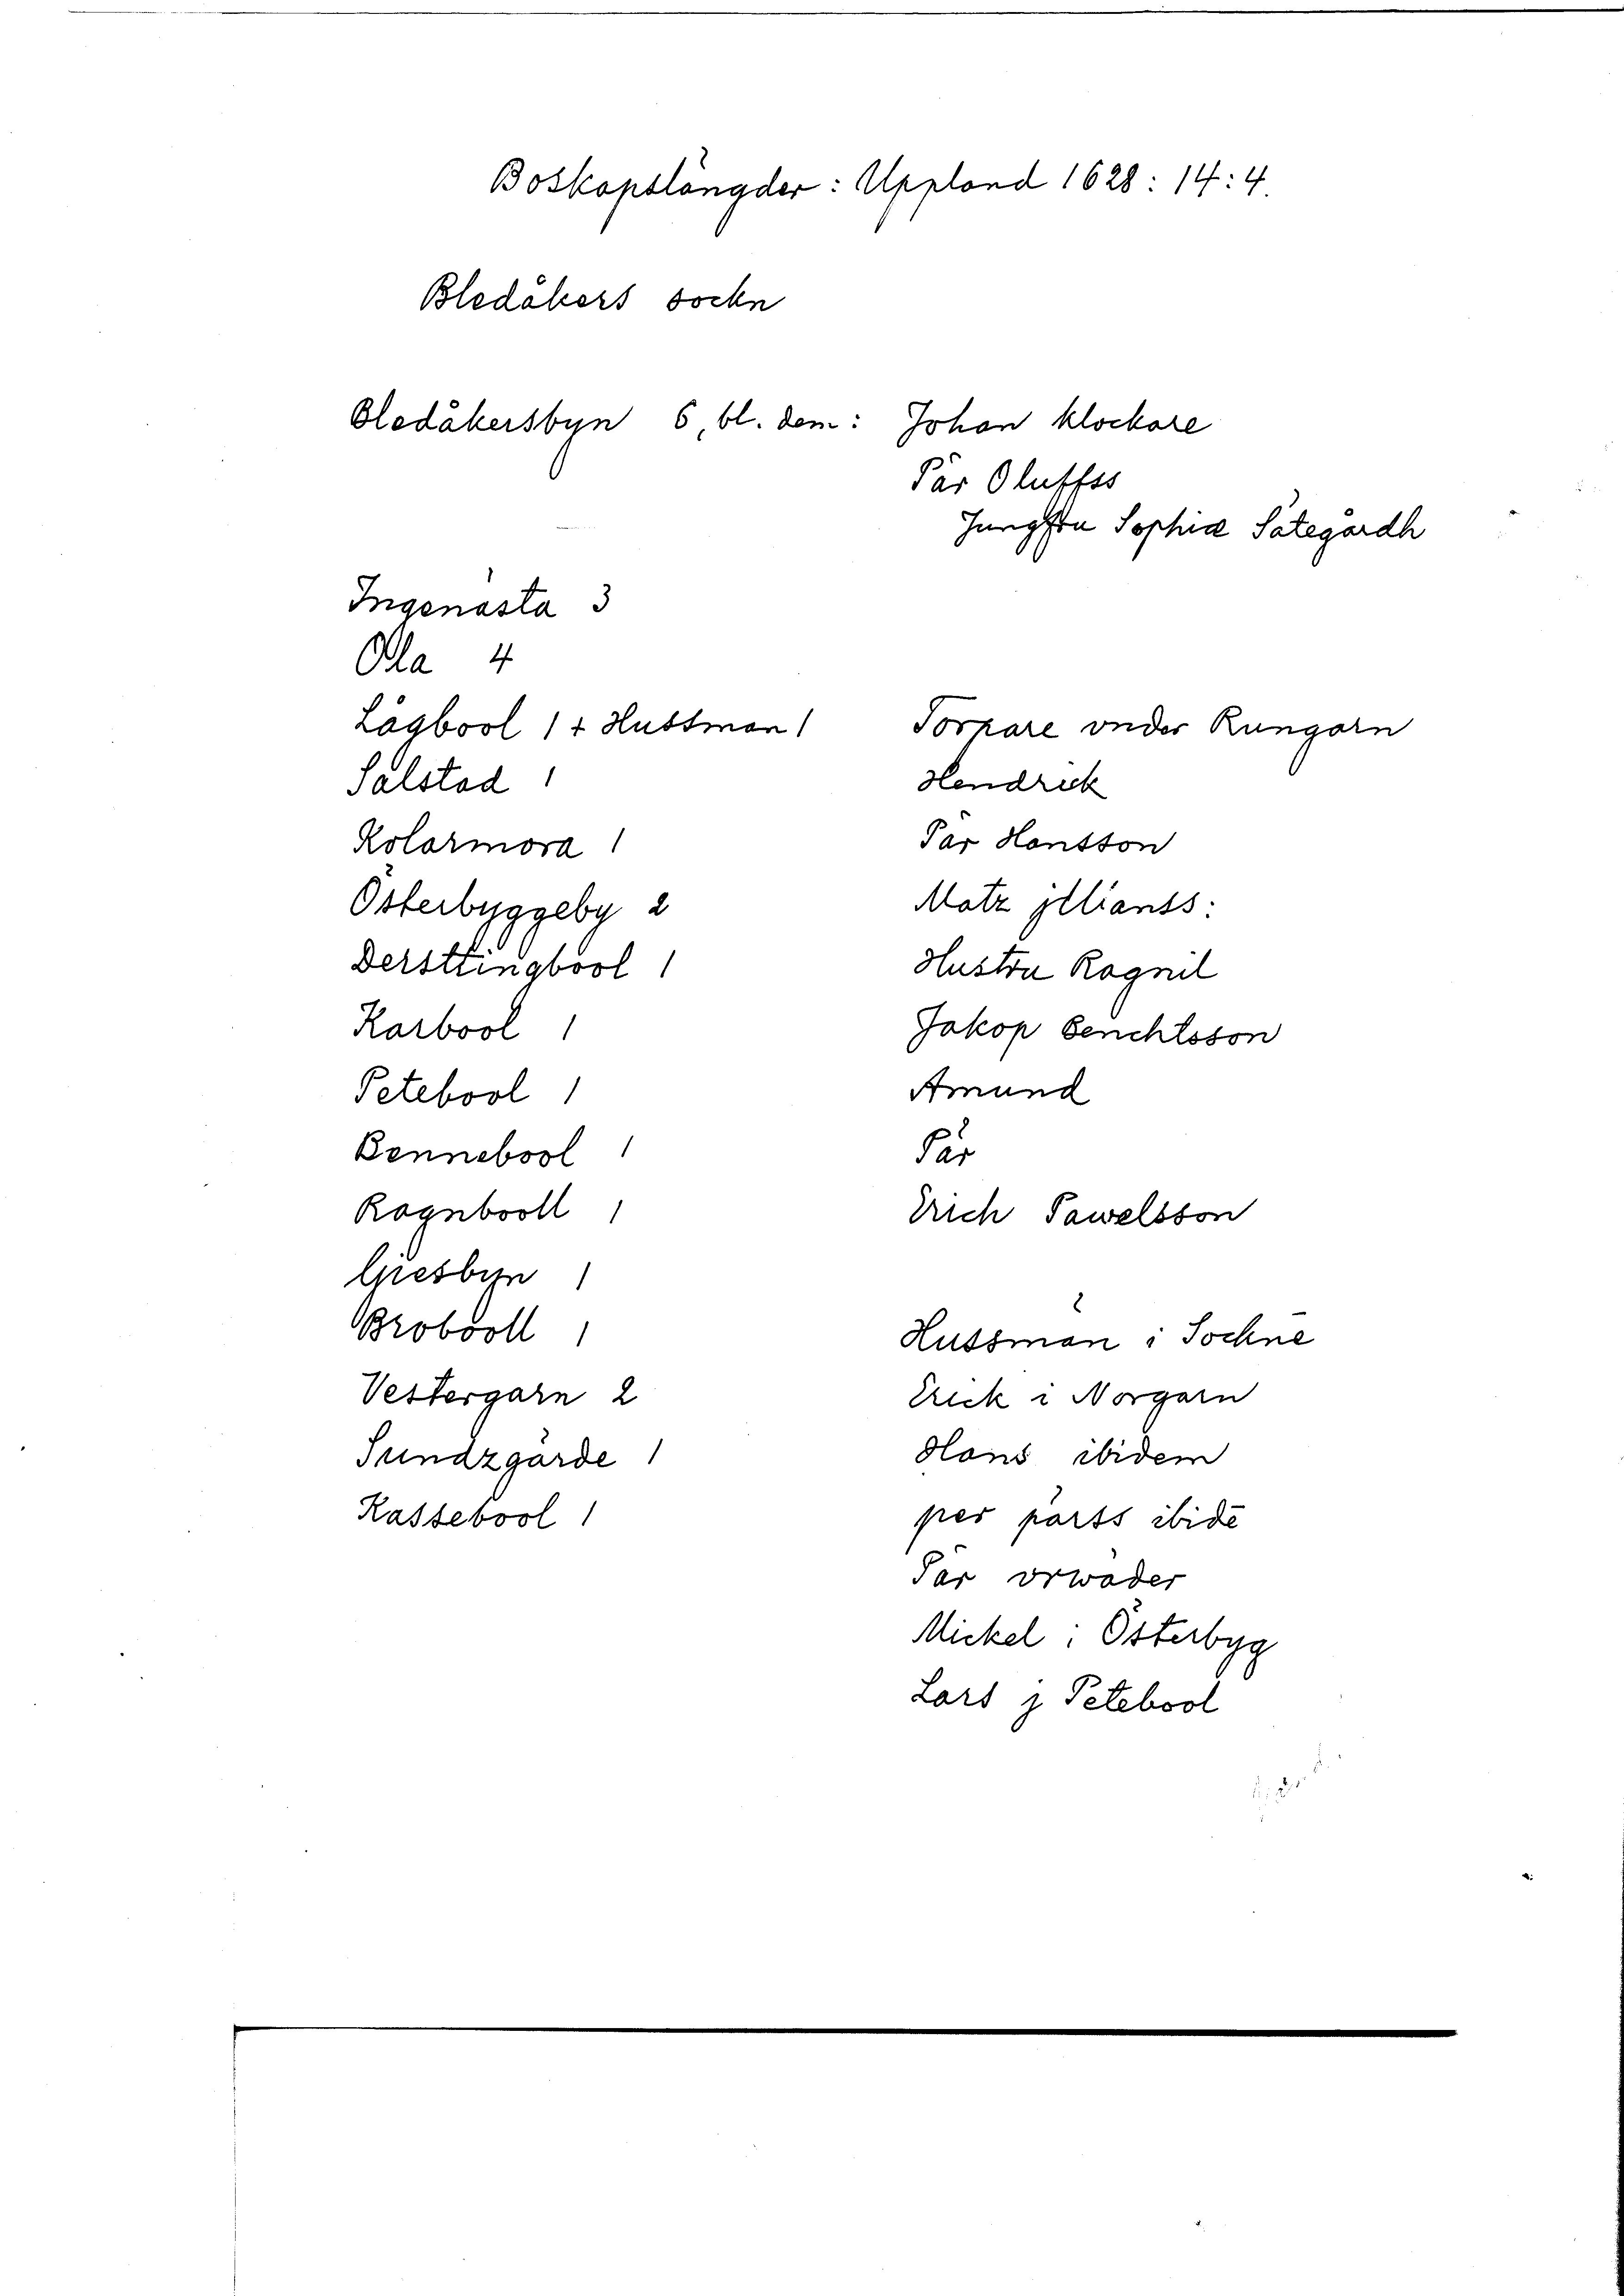 Boskapslängder: Uppland 1628: 14:4.
Bledåkers sockn
Bledåkersbyn 6, bl. dem: Johan klockare
Pär Oluffss
Jungfru Sophia Sätegårdh
Ingenästa 3
Ola 4
Lågbool 1 + Hussman 1
Salstad 1
Kolarmora 1
Österbyggeby 2
Dersttingbool 1
Karbool 1
Petebool 1
Bennebool 1
Ragnbooll 1
Giesbyn 1
Brobooll 1
Vestergarn 2
Sundzgärde 1
Kassebool 1
Torpare vnder Rungarn
Hendrick
Pär Hansson
Matz jllianss:
Hustru Ragnil
Jakop Benchtsson
Amund
Pär
Erich Pawelsson
Hussmän i Sochnē
Erick i Norgarn
Hans ibidem
per pärss ibidē
Pär orwäder
Mickel i Österbyg
Lars j Petebool